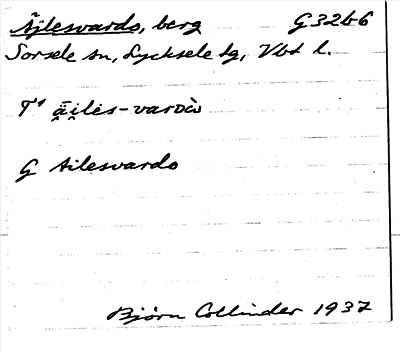 Äjlesvardo, berg G32b6
Sorsele sn, Lycksele lg, Vbd l.
T¹ ä̯i̯les-vardȯ
G Ailesvardo
Björn Collinder 1937